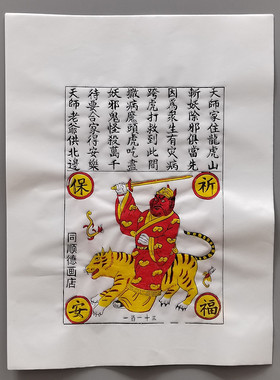 天師家住龍虎山
斬妖除邪俱當先
因為衆生有灾病
跨虎打救到此間
撒病魔頭虎吃盡
妖邪鬼怪殺萬千
待要合家得安樂
天師老爺供北邊
祈
保
福
安
同順德画店